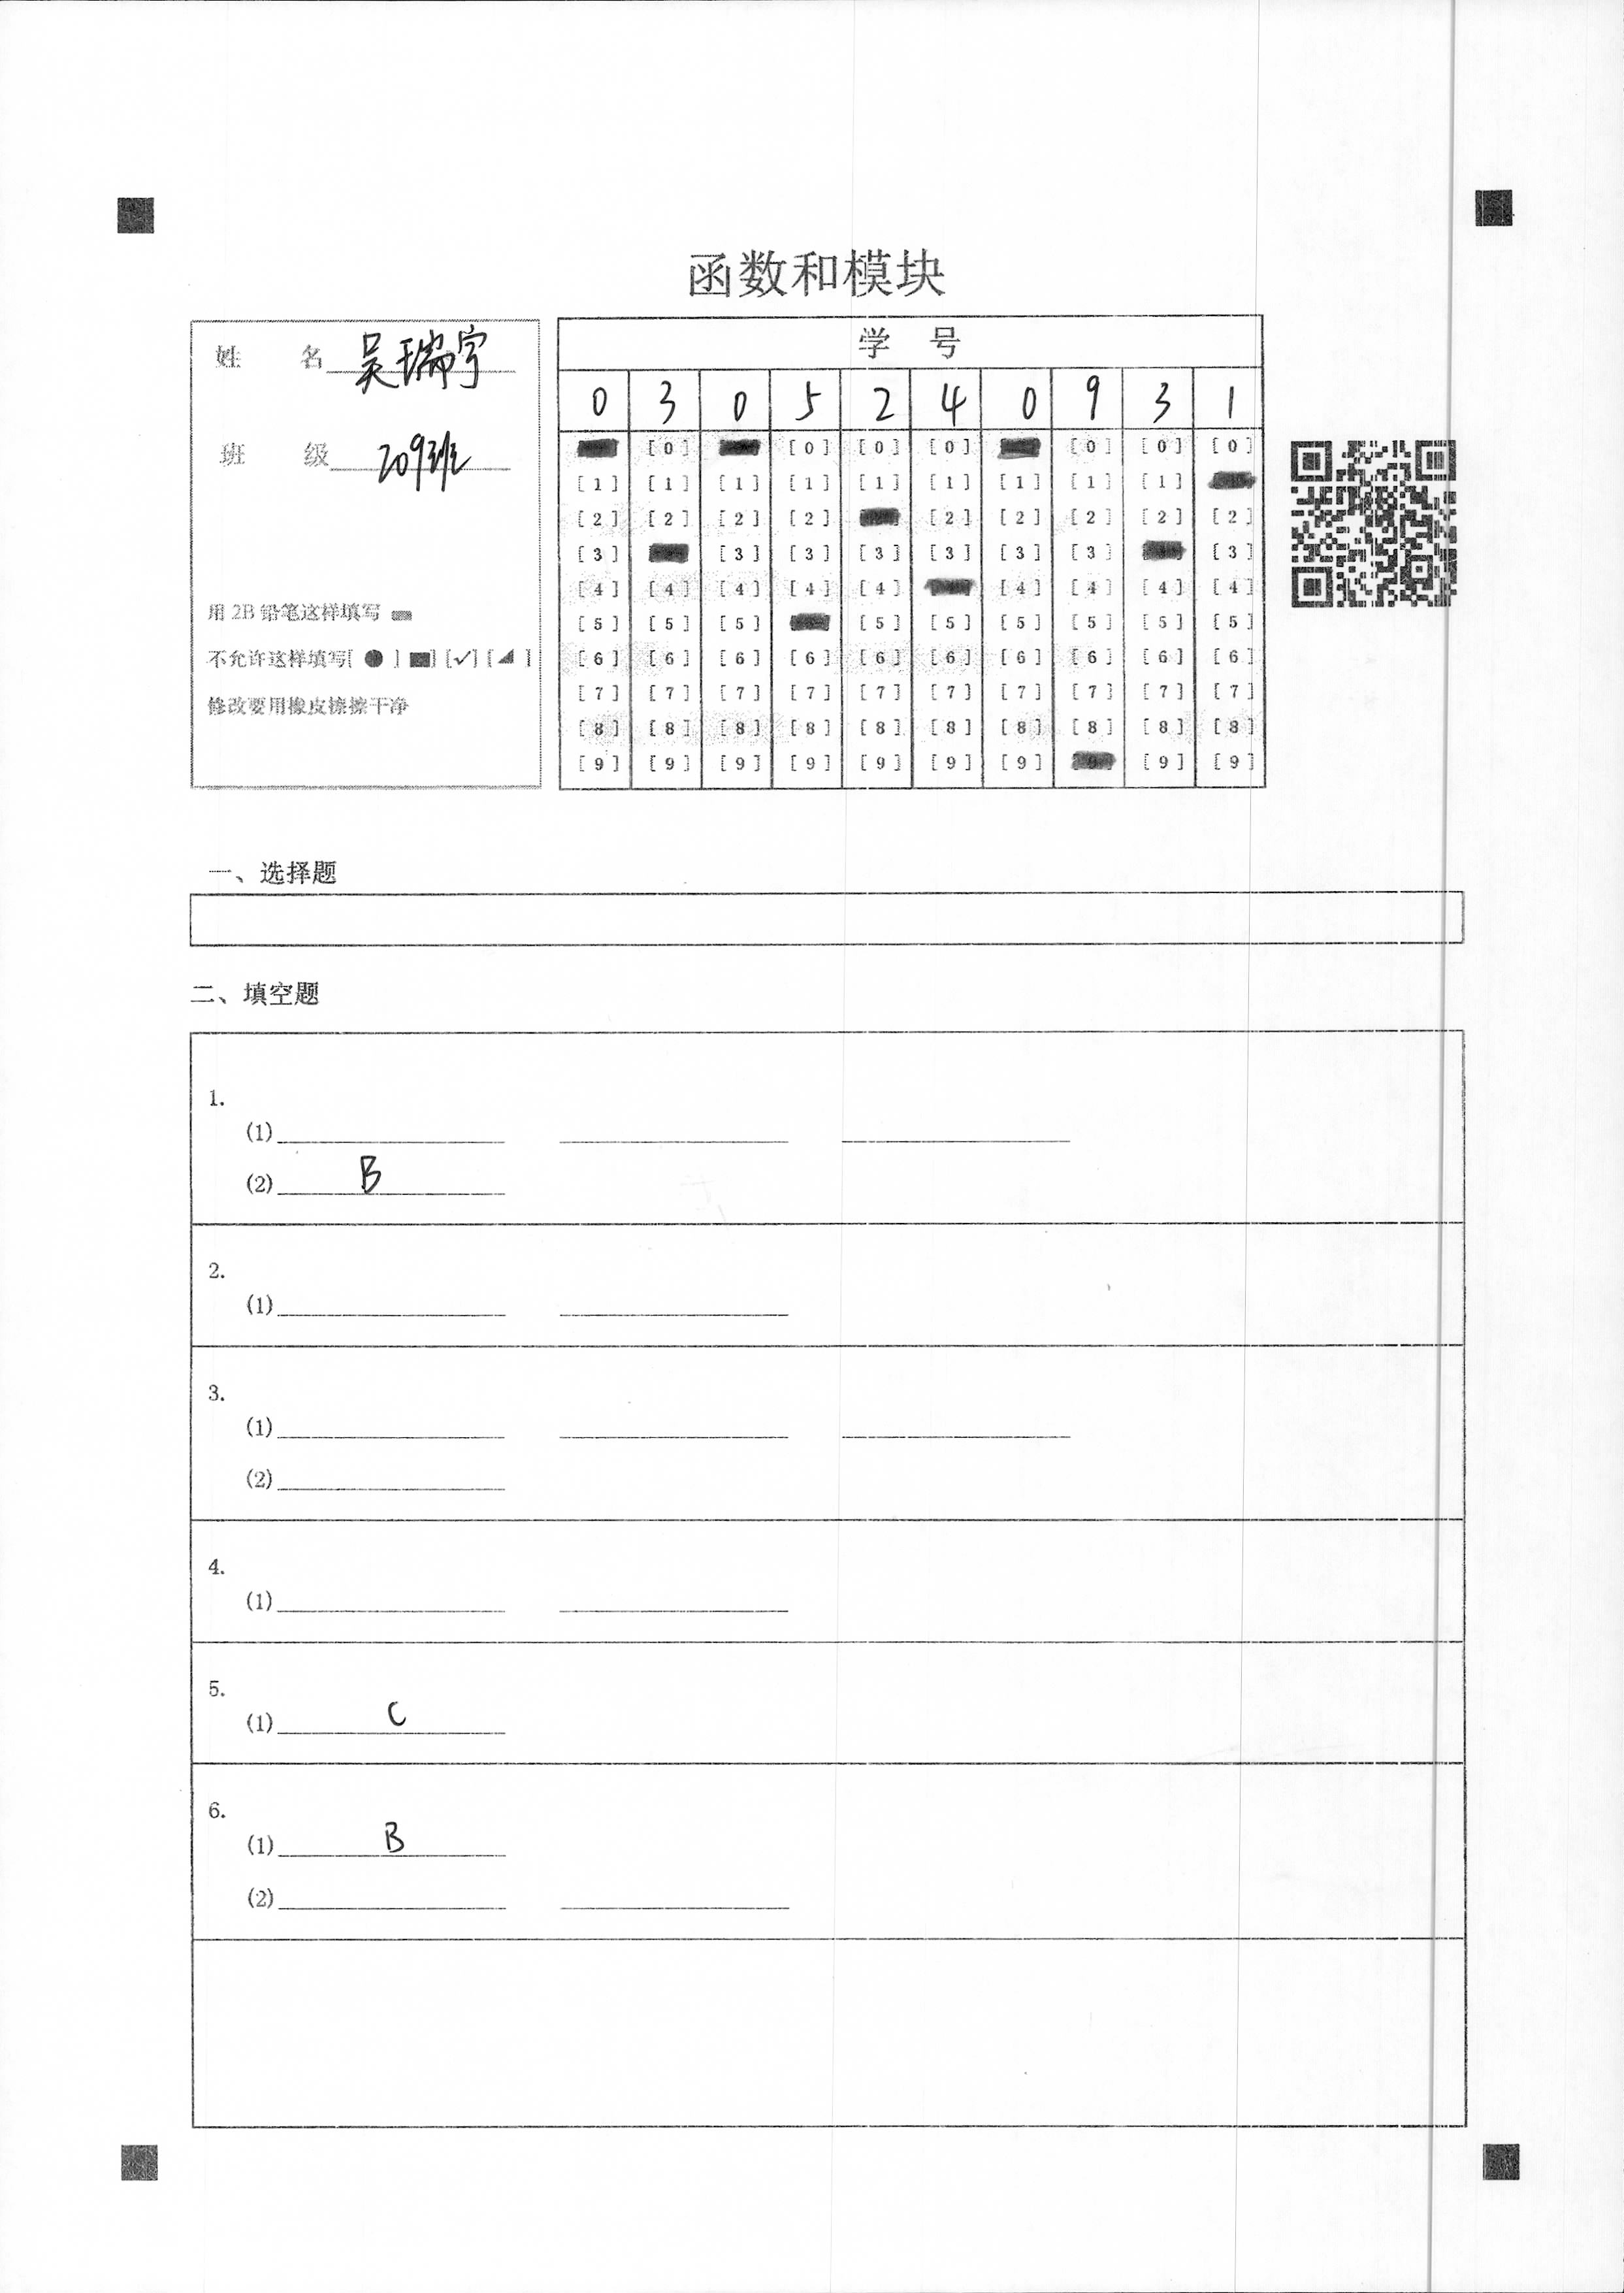 函数和模块
姓 名 吴瑞宇
班 级 209班
用 2B 铅笔这样填写
不允许这样填写[ ● ] [■] [✓] [◢ ]
修改要用橡皮擦擦干净
学 号
0 3 0 5 2 4 0 9 3 1
[0] [0] [0] [0] [0] [0] [0]
[1] [1] [1] [1] [1] [1] [1] [1] [1]
[2] [2] [2] [2] [2] [2] [2] [2] [2]
[3] [3] [3] [3] [3] [3] [3] [3]
[4] [4] [4] [4] [4] [4] [4] [4] [4]
[5] [5] [5] [5] [5] [5] [5] [5] [5]
[6] [6] [6] [6] [6] [6] [6] [6] [6] [6]
[7] [7] [7] [7] [7] [7] [7] [7] [7] [7]
[8] [8] [8] [8] [8] [8] [8] [8] [8] [8]
[9] [9] [9] [9] [9] [9] [9] [9] [9] [9]
一、选择题
二、填空题
1.
(1)
(2) B
2.
(1)
3.
(1)
(2)
4.
(1)
5.
(1) C
6.
(1) B
(2)